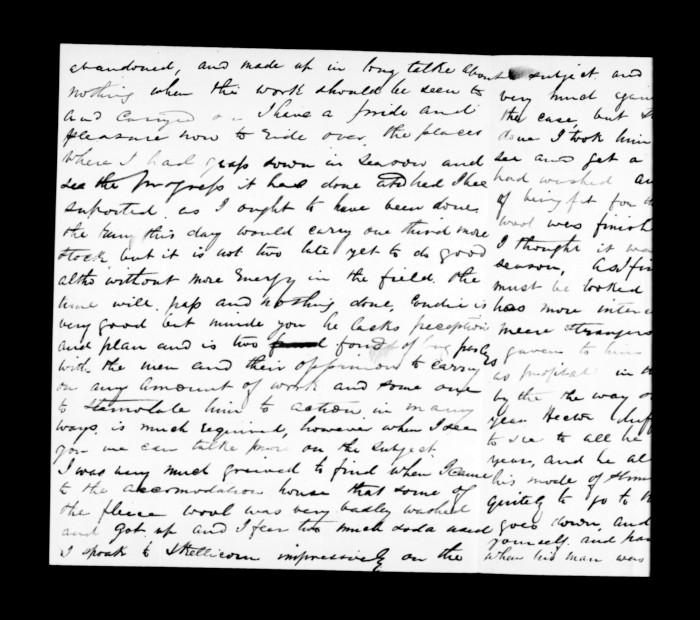 abandoned, and made up in long talke about
nothing when the work should be seen to
and carryed on I have a pride and
pleasure now to ride over the places
where I had grass sown in season and
see the progress it had done and had I bee
suported as I ought to have been done
the run this day would carry one third more
stock but it is not two late yet to do good
altho without more Energy in the field. the
time will pass and nothing done, is
very good but minde you he lacks perception
and plan and is two fond of
with the men and their oppinion to carry
on any amount of work and some one
to stemolate him to action in many
ways is much required, however when I see
you we can talke more on the subject.
I was very much greived to find when I came
to the accomodation house that some of
the fleece wool was very badley washed
and got up and I fear two much soda used
I spoak to Skellicorn impressively on the
subject and
very much
the case, but
done I took him
see and get a
had wished
of being fit for th
wool was finish
I thought it was
season, as I fin
must be looked
has more inter
meere strangers
to him
as in th
by the the way o
year. Hector
to see to all he
years, and he al
his mode of
quitely to go to th
goes down, and
yourself and
when his man was